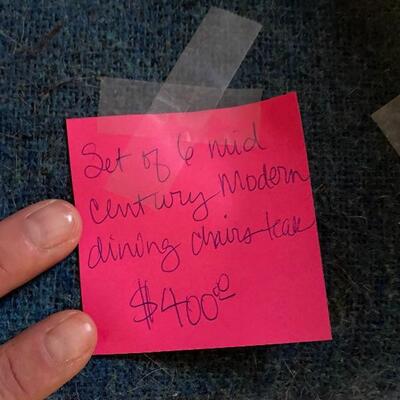 Set of 6 mid
century Modern
dining chairs teak
$400.00